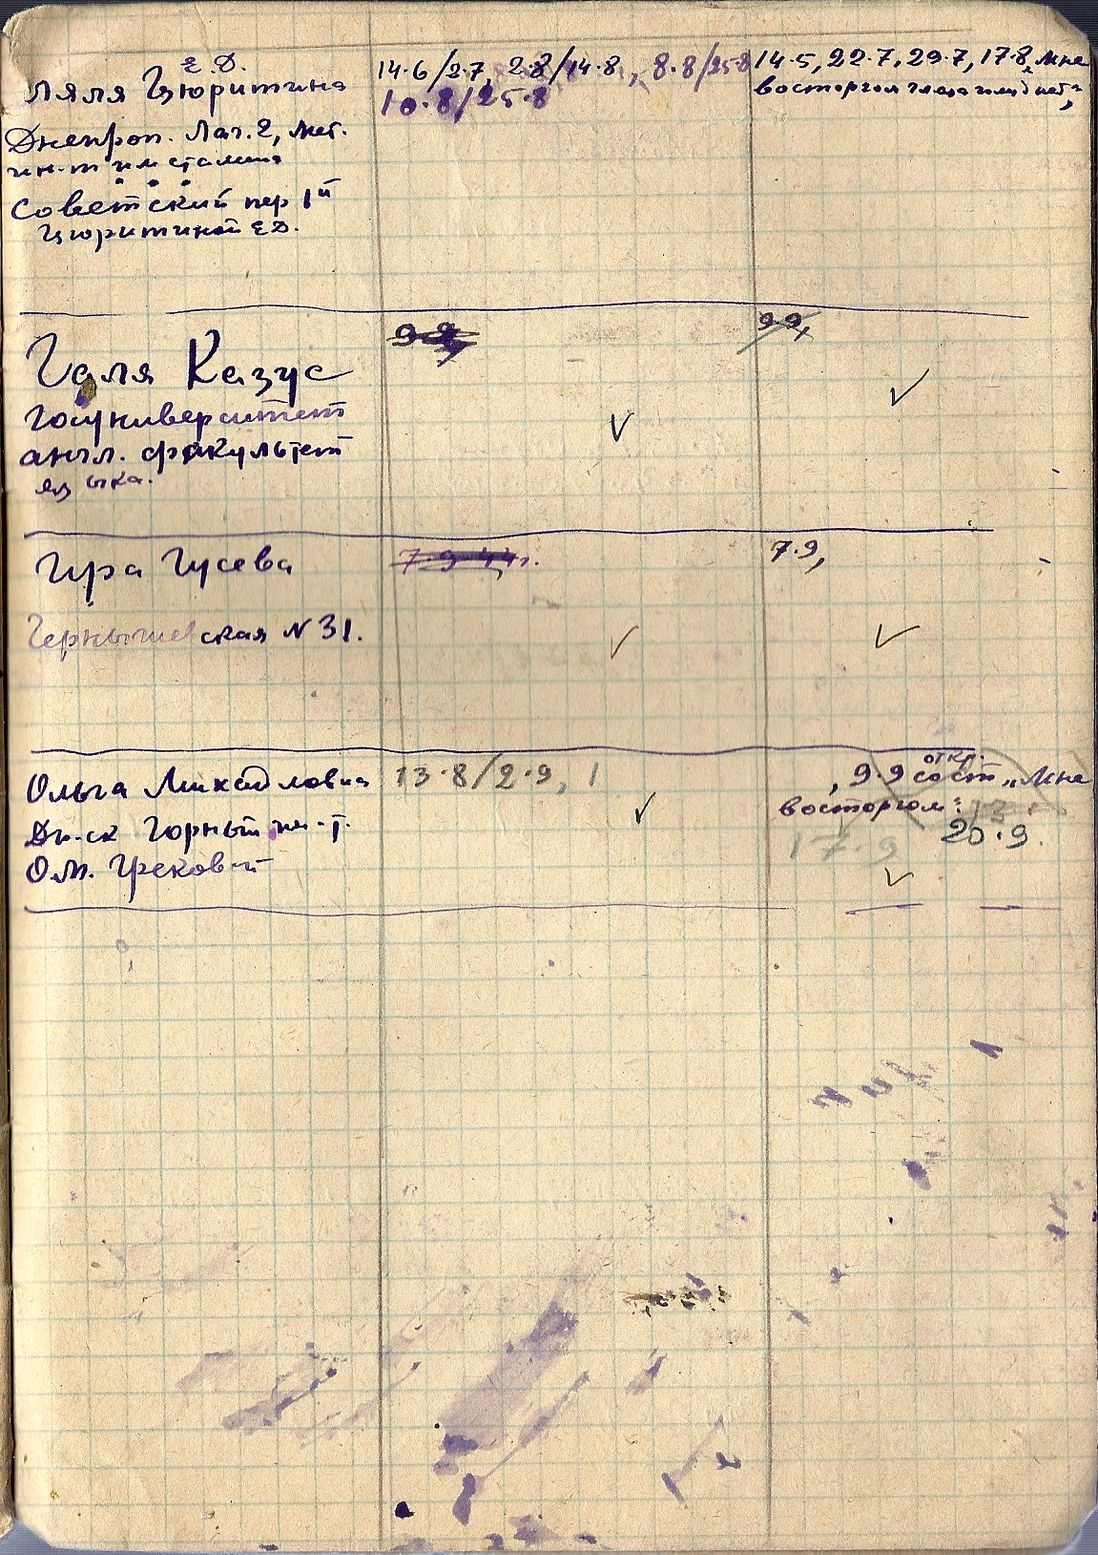 Е.Д.
Ляля Цюритина 14.6/2.7, 2.8/14.8, 8.8/25.8 14.5, 22.7, 29.7, 17.8, „Мне
10.8/25.8 восторгом
Днепроп. Лаг. 2, мет.
ин-т им сталина
Советский пер 1й
Цюритиной ЕД.
9.9, 9.9,
Галя Казус
госуниверситет
англ. факультет
языка.
Ира Гусева 7.9.44г. 7.9,
Чернышевская N 31.
Ольга Михайловна 13.8/2.9, 9.9 сост „Мне
откр.
восторгом"
Дн-ск Горный ин-т. 17.9 20.9.
О.М. Грековой